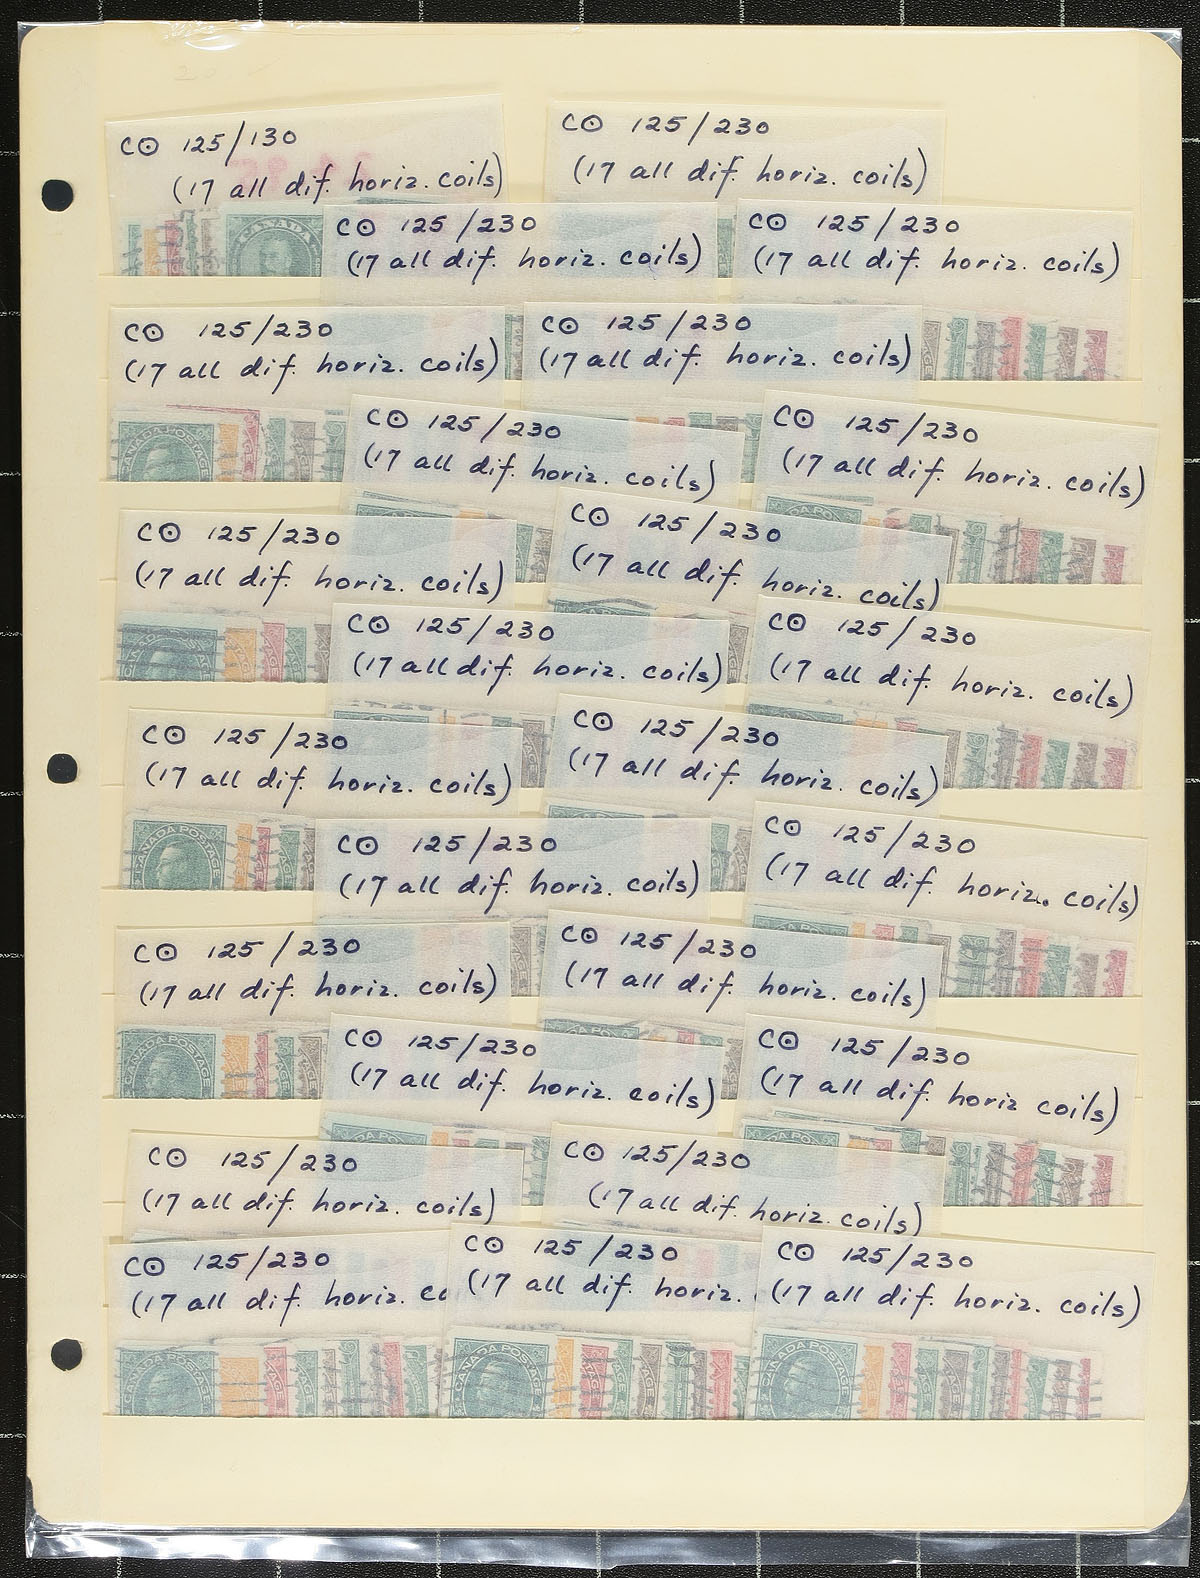 C⊙ 125/130
(17 all dif. horiz. coils)
C⊙ 125/230
(17 all dif. horiz. coils)
CANADA
C⊙ 125/230
(17 all dif. horiz. coils)
C⊙ 125/230
(17 all dif. horiz. coils)
C⊙ 125/230
(17 all dif. horiz. coils)
C⊙ 125/230
(17 all dif. horiz. coils)
CANADA POSTAGE
C⊙ 125/230
(17 all dif. horiz. coils)
C⊙ 125/230
(17 all dif. horiz. coils)
C⊙ 125/230
(17 all dif. horiz. coils)
C⊙ 125/230
(17 all dif. horiz. coils)
C⊙ 125/230
(17 all dif. horiz. coils)
C⊙ 125/230
(17 all dif. horiz. coils)
C⊙ 125/230
(17 all dif. horiz. coils)
C⊙ 125/230
(17 all dif. horiz. coils)
CANADA POSTAGE
C⊙ 125/230
(17 all dif. horiz. coils)
C⊙ 125/230
(17 all dif. horiz. coils)
C⊙ 125/230
(17 all dif. horiz. coils)
C⊙ 125/230
(17 all dif. horiz. coils)
CANADA POSTAGE
C⊙ 125/230
(17 all dif. horiz. coils)
C⊙ 125/230
(17 all dif. horiz coils)
C⊙ 125/230
(17 all dif. horiz. coils)
C⊙ 125/230
(17 all dif. horiz. coils)
C⊙ 125/230
(17 all dif. horiz. co
C⊙ 125/230
(17 all dif. horiz.
C⊙ 125/230
(17 all dif. horiz. coils)
CANADA POSTAGE
CANADA POSTAGE
CANADA POSTAGE